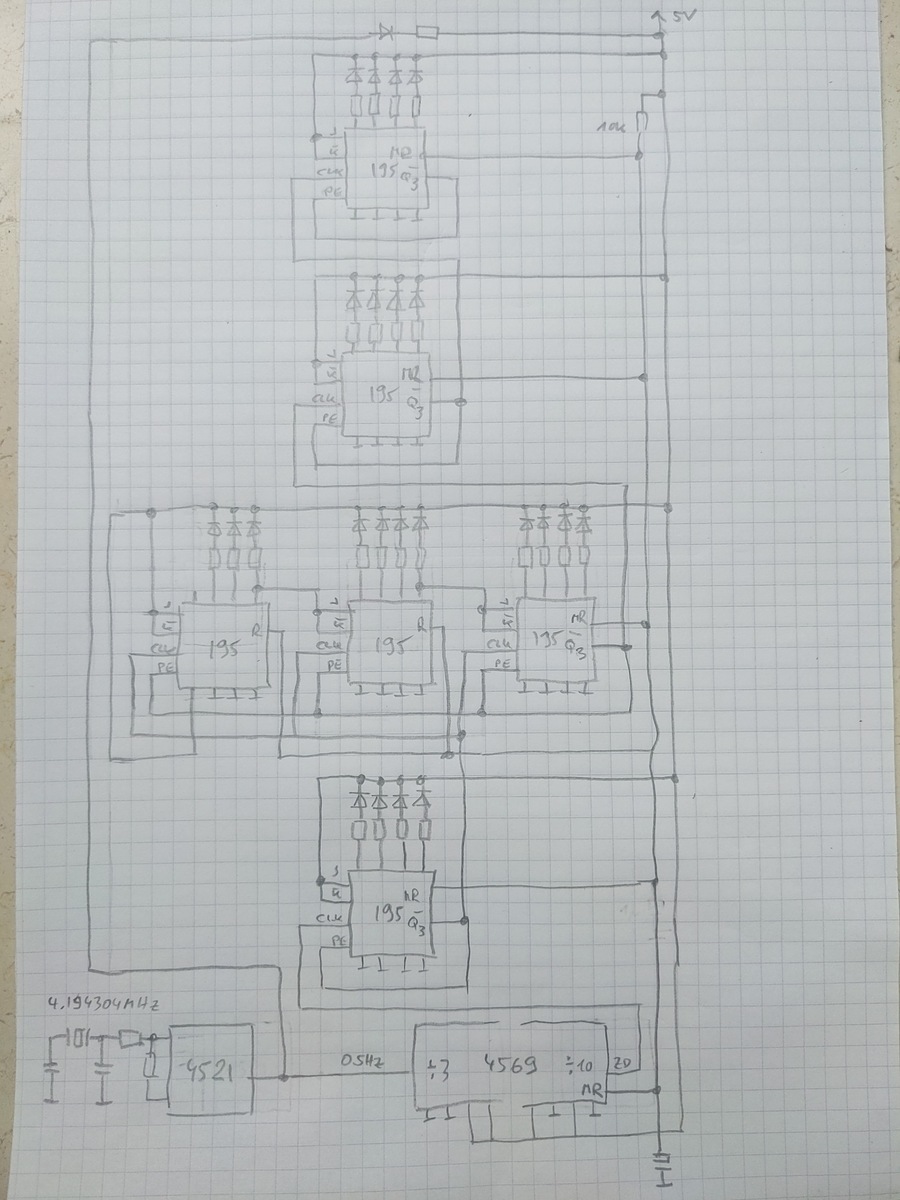 5V
10k
J
K̅
MR
195
Q̅3
CLK
PE
J
K̅
MR
195
Q̅3
CLK
PE
J
K̅
R
195
CLK
PE
J
K̅
R
195
CLK
PE
J
K̅
MR
195
Q̅3
CLK
PE
J
K̅
MR
195
Q̅3
CLK
PE
4.194304MHz
4521
0.5Hz
÷3 4569 ÷10 ZD
MR